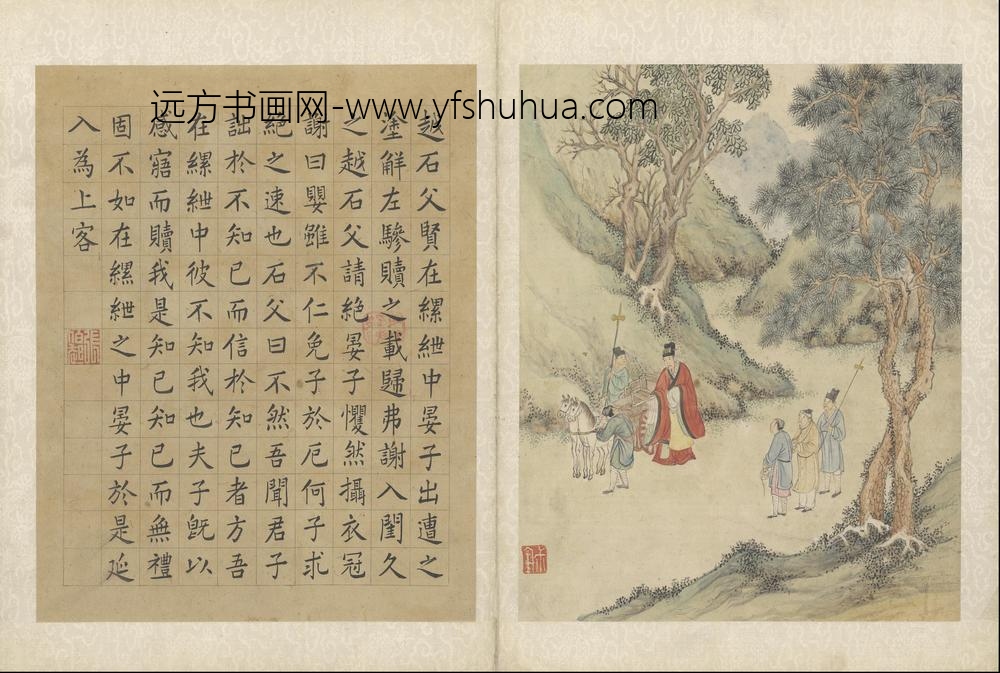 远方书画网-www.yfshuhua.com
越石父賢在縲紲中晏子出遭之
塗解左驂贖之載歸弗謝入閨久
之越石父請絕晏子戄然攝衣冠
謝曰嬰雖不仁免子於厄何子求
絕之速也石父曰不然吾聞君子
詘於不知己而信於知己者方吾
在縲紲中彼不知我也夫子旣以
感寤而贖我是知己知己而無禮
固不如在縲紲之中晏子於是延
入為上客